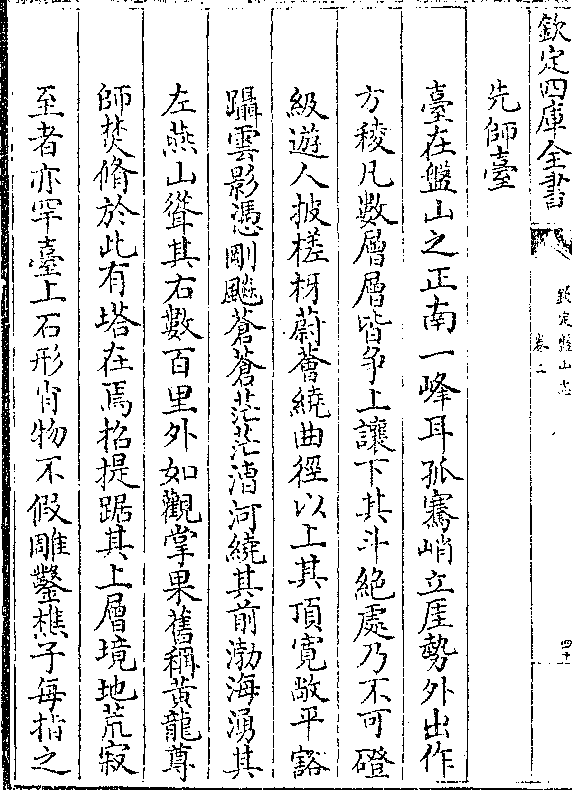 欽定四庫全書
欽定盤山志
卷二
四十
先師臺
臺在盤山之正南一峰耳孤騫峭立厓勢外出作
方稜凡數層層皆争上讓下其斗絶處乃不可磴
級遊人披槎枒蔚薈繞曲徑以上其頂寛敞平豁
躡雲影憑剛飈蒼蒼茫茫漕河繞其前渤海湧其
左燕山聳其右數百里外如觀掌果舊稱黄龍尊
師焚脩於此有塔在焉招提踞其上層境地荒寂
至者亦罕臺上石形肖物不假雕鑿樵子每指之